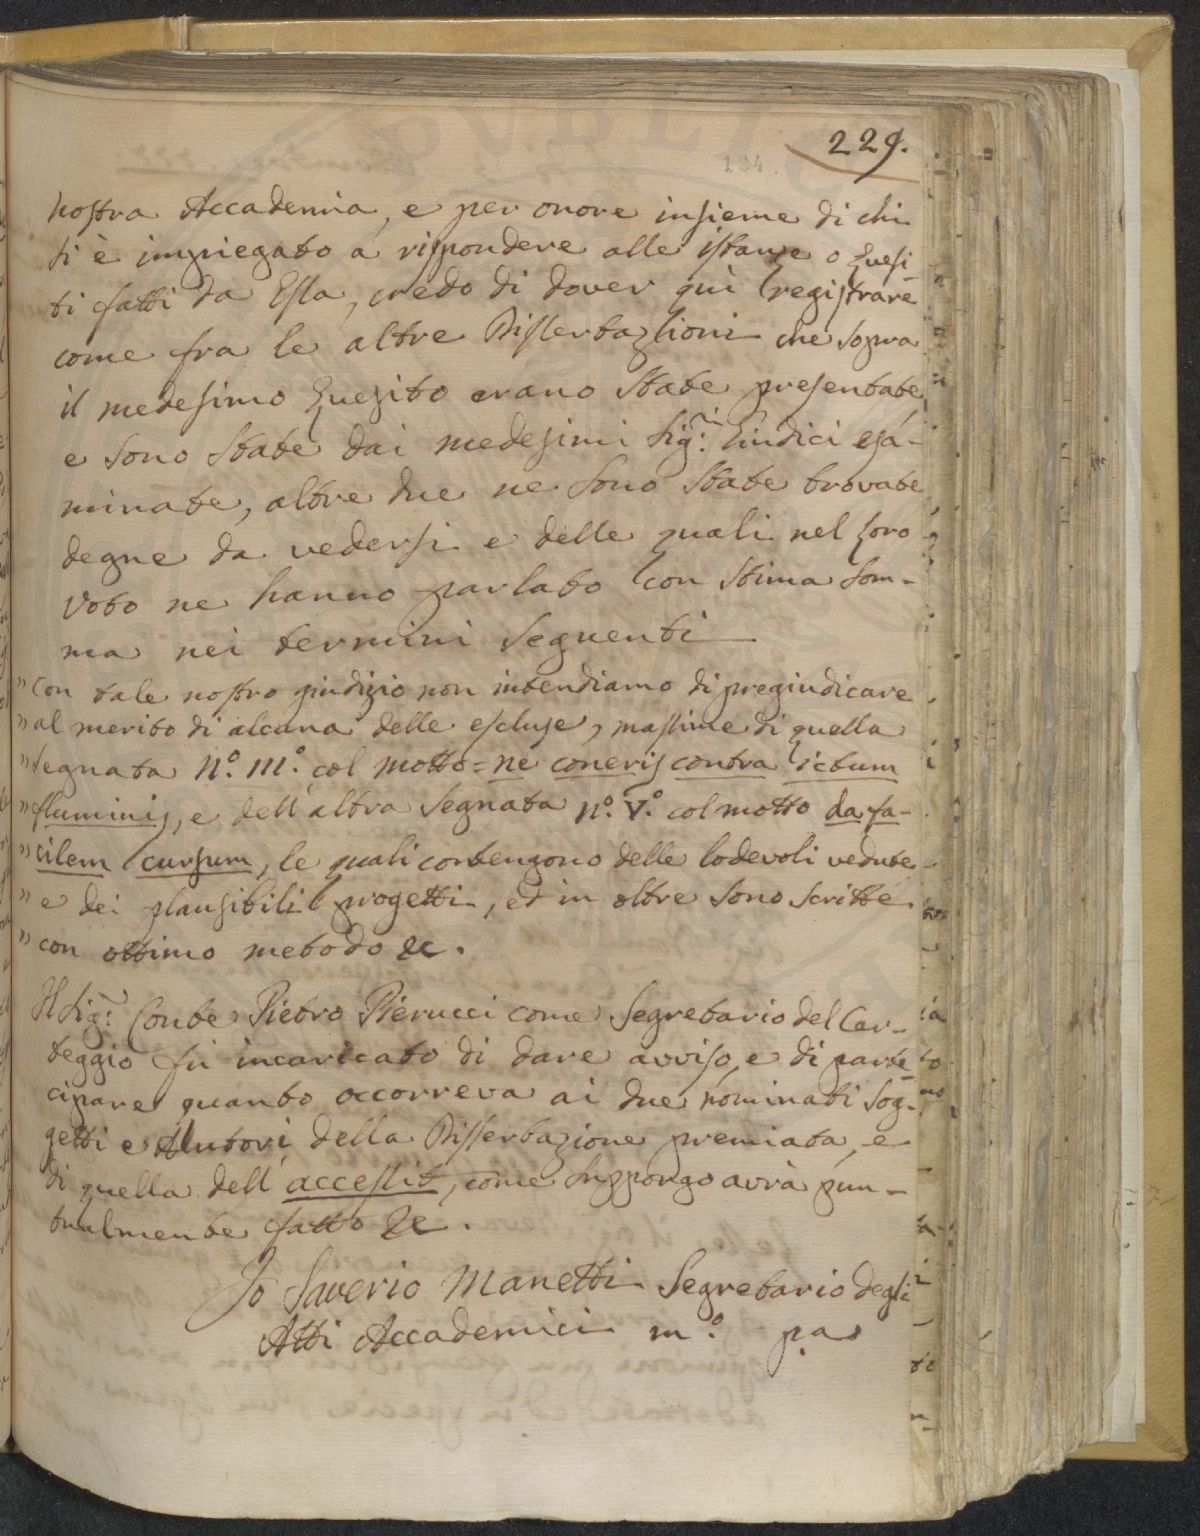 229.
184.
nostra Accademia, e per onore insieme di chi
si è impiegato a rispondere alle istanze o Quesi-
ti fatti da Essa, credo di dover quì registrare
come fra le altre Dissertazioni che sopra
il medesimo Quesito erano state presentate
e sono state dai medesimi Sig.ri Giudici esa-
minate, altre due ne sono state trovate
degne da vedersi e delle quali nel loro
voto ne hanno parlato con stima som-
ma nei termini seguenti
" Con tale nostro giudizio non intendiamo di pregiudicare
" al merito di alcuna delle escluse, massime di quella
" segnata N.º III.º col motto = ne coneris contra ictum
" fluminis, e dell'altra segnata N.º V.º col motto da fa-
" cilem cursum, le quali contengono delle lodevoli vedute
" e dei plausibili progetti, ed in oltre sono scritte
" con ottimo metodo &c.
Il Sig.r Conte Pietro Pierucci come Segretario del Car-
teggio fu incaricato di dare avviso, e di parte-
cipare quanto occorreva ai due nominati Sog-
getti e Autori della Dissertazione premiata, e
di quella dell'accessit, come suppongo avrà pun-
tualmente fatto &c.
Io Saverio Manetti Segretario degli
Atti Accademici m.º pa